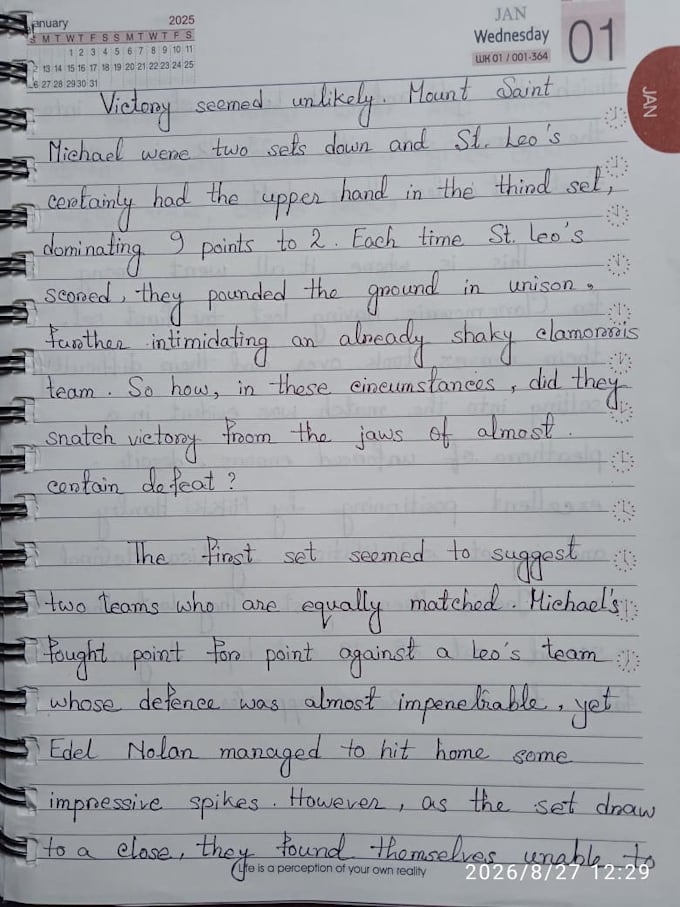 January 2025
S M T W T F S S M T W T F S
1 2 3 4 5 6 7 8 9 10 11
12 13 14 15 16 17 18 19 20 21 22 23 24 25
26 27 28 29 30 31
JAN
Wednesday
WK 01 / 001-364
01
JAN
Victory seemed unlikely. Mount Saint
Michael were two sets down and St. Leo's
certainly had the upper hand in the third set,
dominating 9 points to 2. Each time St. Leo's
scored, they pounded the ground in unison,
further intimidating an already shaky clamorris
team. So how, in these circumstances, did they
snatch victory from the jaws of almost.
certain defeat?
The first set seemed to suggest
two teams who are equally matched. Michael's
fought point for point against a Leo's team
whose defence was almost impenetrable, yet
Edel Nolan managed to hit home some
impressive spikes. However, as the set draw
to a close, they found themselves unable to
Life is a perception of your own reality
2026/8/27 12:29